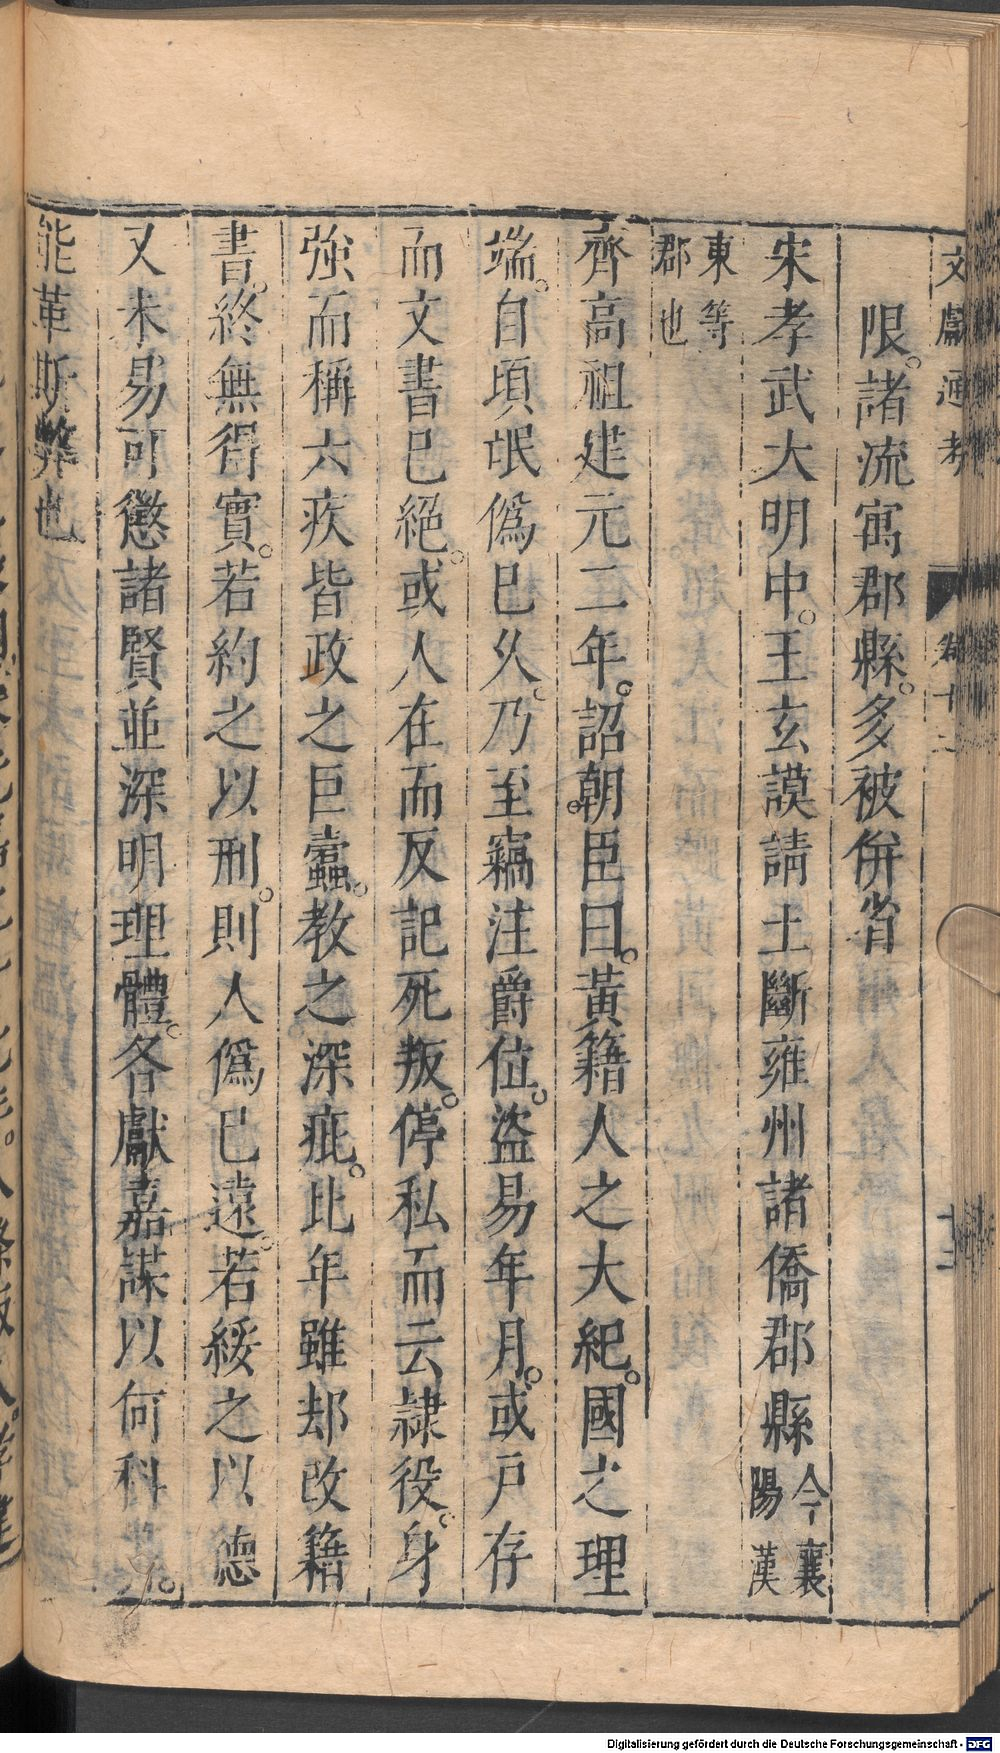 文獻通考 卷十二
限。諸流寓郡縣。多被併省
宋孝武大明中。王玄謨請土斷雍州諸僑郡縣今襄陽漢
東等郡也
齊高祖建元二年。詔朝臣曰。黃籍人之大紀。國之理
端。自頃氓僞已久。乃至竊注爵位。盜易年月。或戶存
而文書已絕。或人在而反記死叛。停私而云隸役。身
強而稱六疾皆政之巨蠹。教之深疵。比年雖却改籍
書。終無得實。若約之以刑。則人僞已遠。若綏之以德
又未易可懲諸賢並深明理體。各獻嘉謀以何科
能革斯弊也
Digitalisierung gefördert durch die Deutsche Forschungsgemeinschaft - DFG